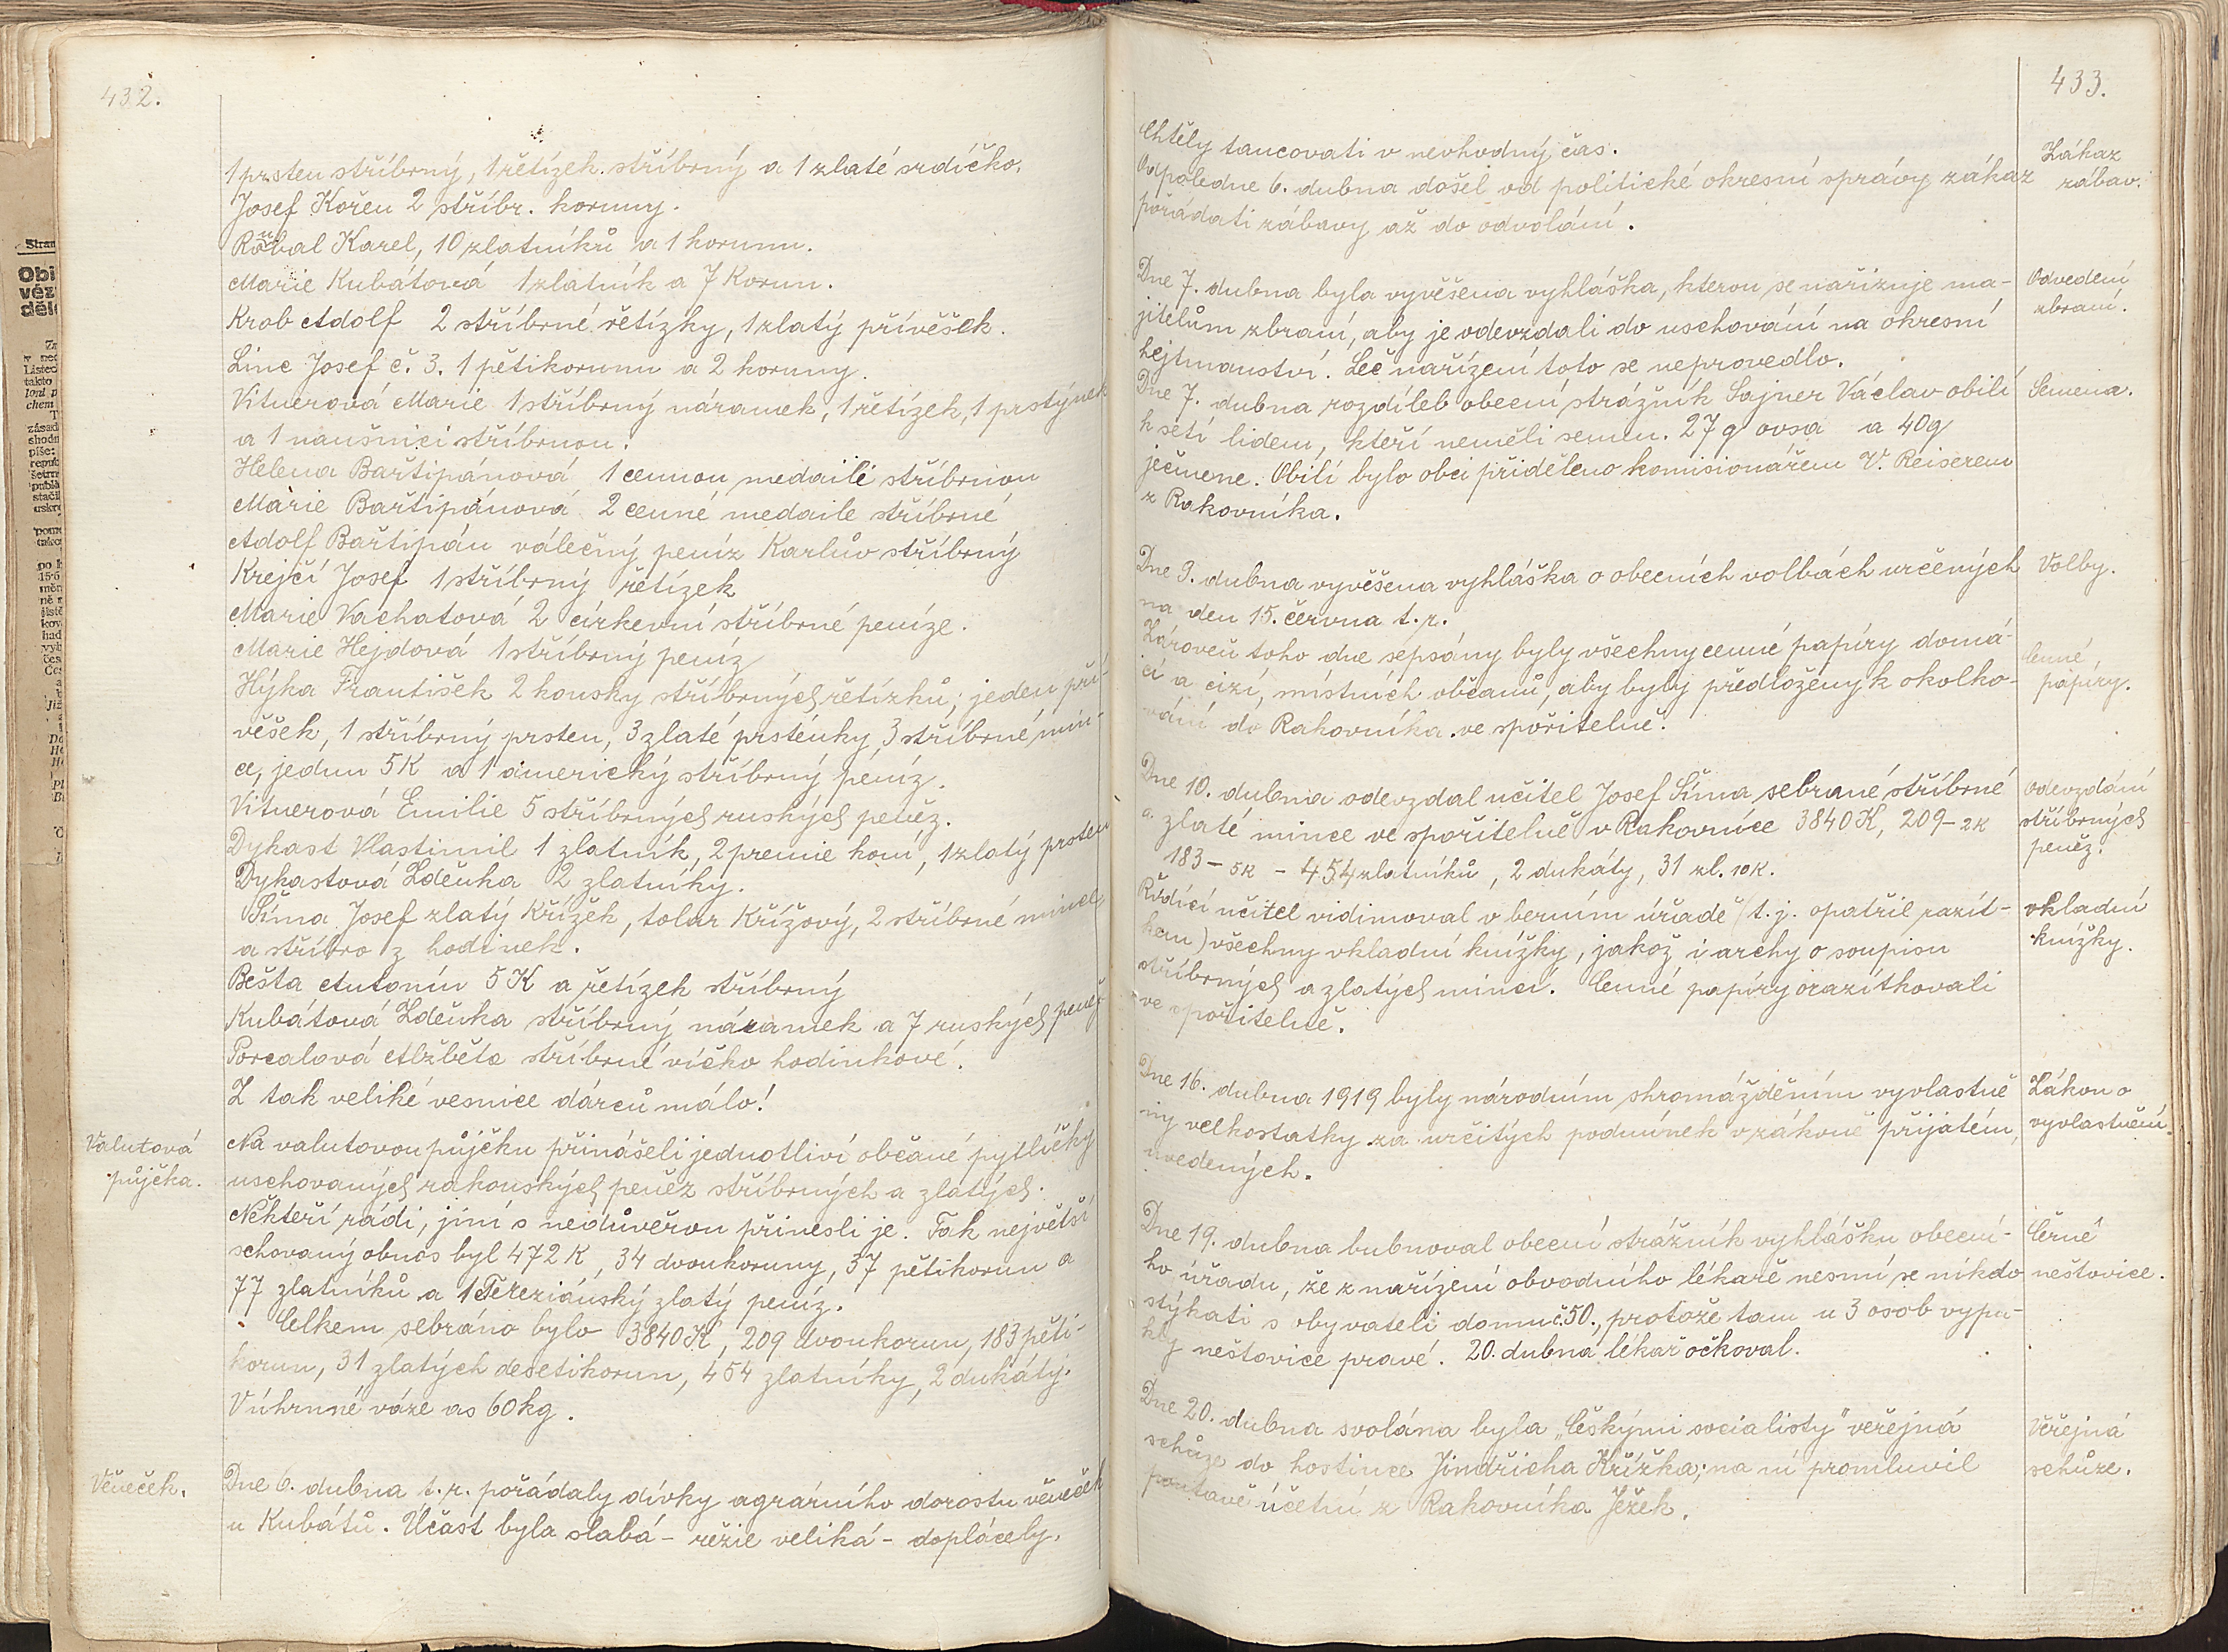 432.
1 prsten stříbrný, 1 řetízek stříbrný a 1 zlaté srdíčko.
Josef Kořen 2 stříbr. koruny.
Roubal Karel, 10 zlatníků a 1 korunu.
Marie Kubátová 1 zlatník a 7 Korun.
Krob Adolf 2 stříbrné řetízky, 1 zlatý přívěšek.
Linc Josef č. 3. 1 pětikorunu a 2 koruny.
Vitnerová Marie 1 stříbrný náramek, 1 řetízek, 1 prstýnek
a 1 naušnici stříbrnou.
Helena Bařtipánová 1 cennou medaili stříbrnou
Marie Bařtipánová 2 cenné medaile stříbrné
Adolf Bařtipán válečný peníz Karlův stříbrný
Krejčí Josef 1 stříbrný řetízek
Marie Vachatová 2 církevní stříbrné peníze.
Marie Hejdová 1 stříbrný peníz
Hýka František 2 kousky stříbrných řetízků; jeden pří-
věšek, 1 stříbrný prsten, 3 zlaté prsténky, 3 stříbrné min-
ce, jednu 5K a 1 americký stříbrný peníz.
Vitnerová Emilie 5 stříbrných ruských peněz.
Dykast Vlastimil 1 zlatník, 2 premie koní, 1 zlatý prsten
Dykastová Zdeňka 2 zlatníky.
Šíma Josef zlatý křížek, tolar Křížový, 2 stříbrné mince
a stříbro z hodinek.
Bešta Antonín 5 K a řetízek stříbrný
Kubátová Zdeňka stříbrný náramek a 7 ruských peněz
Porcalová Alžběta stříbrné víčko hodinkové.
Z tak veliké vesnice dárců málo!
Valutová
půjčka.
Na valutovou půjčku přinášeli jednotliví občané pytlíčky
uschovaných rakouských peněz stříbrných a zlatých.
Někteří rádi, jiní s nedůvěrou přinesli je. Tak největší
schovaný obnos byl 472 K, 34 dvoukoruny, 37 pětikorun a
77 zlatníků a 1 Tereziánský zlatý peníz.
Celkem sebráno bylo 3840 K, 209 dvoukorun, 183 pěti-
korun, 31 zlatých desetikorun, 454 zlatníky, 2 dukáty.
Vúhrnné váze as 60kg.
Věneček.
Dne 6. dubna t.r. pořádaly dívky agrárního dorostu věneček
u Kubátů. Účast byla slabá - režie veliká - doplácely.
433.
Chtěly tancovati v nevhodný čas.
Odpoledne 6. dubna došel od politické okresní správy zákaz
pořádati zábavy až do odvolání.
Zákaz
zábav.
Dne 7. dubna byla vyvěšena vyhláška, kterou se nařizuje ma-
jitelům zbraní, aby je odevzdali do uschování na okresní
hejtmanství. Leč nařízení toto se neprovedlo.
Odvedení
zbraní.
Dne 7. dubna rozdíleb obecní strážník Sajner Václav obilí
k setí lidem, kteří neměli semen. 27 q ovsa a 40q
ječmene. Obilí bylo obci přiděleno komisionářem V. Reiserem
z Rakovníka.
Semena.
Dne 9. dubna vyvěšena vyhláška o obecních volbách určených
na den 15. června t.r.
Volby.
Zároveň toho dne sepsány byly všechny cenné papíry domá-
cí a cizí, místních občanů, aby byly předloženy k okolko-
vání do Rakovníka ve spořitelně.
Cenné
papíry.
Dne 10. dubna odevzdal učitel Josef Šíma sebrané stříbrné
a zlaté mince ve spořitelně v Rakovníce 3840 K, 209 - 2K
183 - 5K - 454 zlatníků, 2 dukáty, 31 zl. 10K.
Odevzdání
stříbrných
peněz.
Řídící učitel vidimoval v berním úřadě (t.j. opatřil razít-
kem) všechny vkladní knížky, jakož i archy o soupisu
stříbrných a zlatých mincí. Cenné papíry orazítkovali
ve spořitelně.
vkladní
knížky.
Dne 16. dubna 1919 byly národním shromážděním vyvlastně
ny velkostatky za určitých podmínek v zákoně přijatém,
uvedených.
Zákon o
vyvlastnění.
Dne 19. dubna bubnoval obecní strážník vyhlášku obecní-
ho úřadu, že z nařízení obvodního lékaře nesmí se nikdo
stýkati s obyvateli domu č. 50., protože tam u 3 osob vypu-
kly neštovice pravé. 20. dubna lékař očkoval.
Černé
neštovice.
Dne 20. dubna svolána byla „Českými socialisty" veřejná
schůze do hostince Jindřicha Křížka; na ní promluvil
poutavě účetní z Rakovníka Ježek.
Veřejná
schůze.